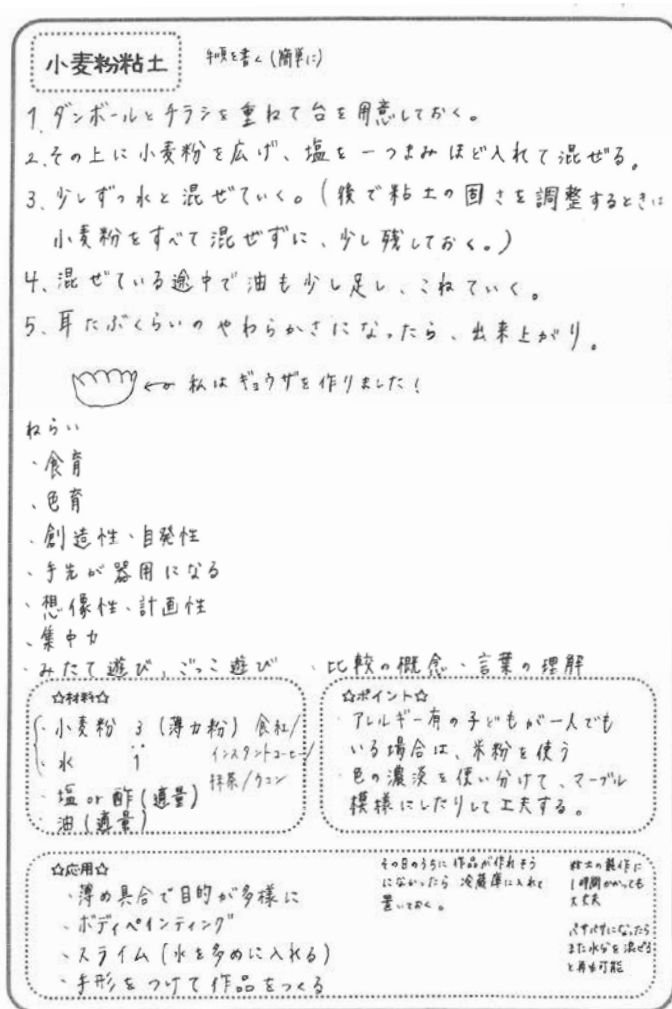 小麦粉粘土
手順を書く(簡単に)
1. ダンボールとチラシを重ねて台を用意しておく。
2. その上に小麦粉を広げ、塩を一つまみほど入れて混ぜる。
3. 少しずつ水と混ぜていく。(後で粘土の固さを調整するときは
小麦粉をすべて混ぜずに、少し残しておく。)
4. 混ぜている途中で油も少し足し、こねていく。
5. 耳たぶくらいのやわらかさになったら、出来上がり。
← 私はギョウザを作りました!
ねらい
・食育
・色育
・創造性・自発性
・手先が器用になる
・想像性・計画性
・集中力
・みたて遊び、ごっこ遊び ・比較の概念・言葉の理解
☆材料☆
・小麦粉 3 (薄力粉) 食紅/
・水 : 1 インスタントコーヒー/
抹茶/ウコン
・塩 or 酢(適量)
・油(適量)
☆ポイント☆
・アレルギー有の子どもが一人でも
いる場合は、米粉を使う
・色の濃淡を使い分けて、マーブル
模様にしたりして工夫する。
☆応用☆
・薄め具合で目的が多様に
・ボディペインティング
・スライム(水を多めに入れる)
・手形をつけて作品をつくる
その日のうちに作品が作れそう
になかったら 冷蔵庫に入れて
置いておく。
粘土の製作に
1時間かかっても
大丈夫
パサパサになったら
また水分を混ぜる
と再生可能